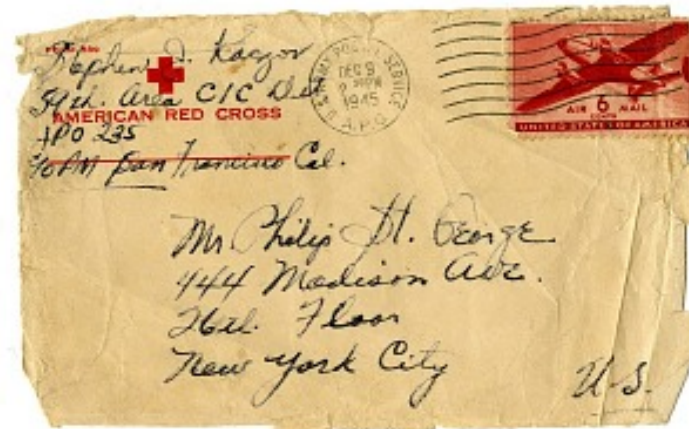 Stephen J. Kaczor
59th. Area CIC Det
AMERICAN RED CROSS
APO 235
℅ PM San Francisco Cal.
U.S. ARMY POSTAL SERVICE
DEC 9
1945
A.P.O.
AIR 6 MAIL
CENTS
UNITED STATES OF AMERICA
Mr. Philip St. George
444 Madison Ave.
26th. Floor
New York City
U.S.